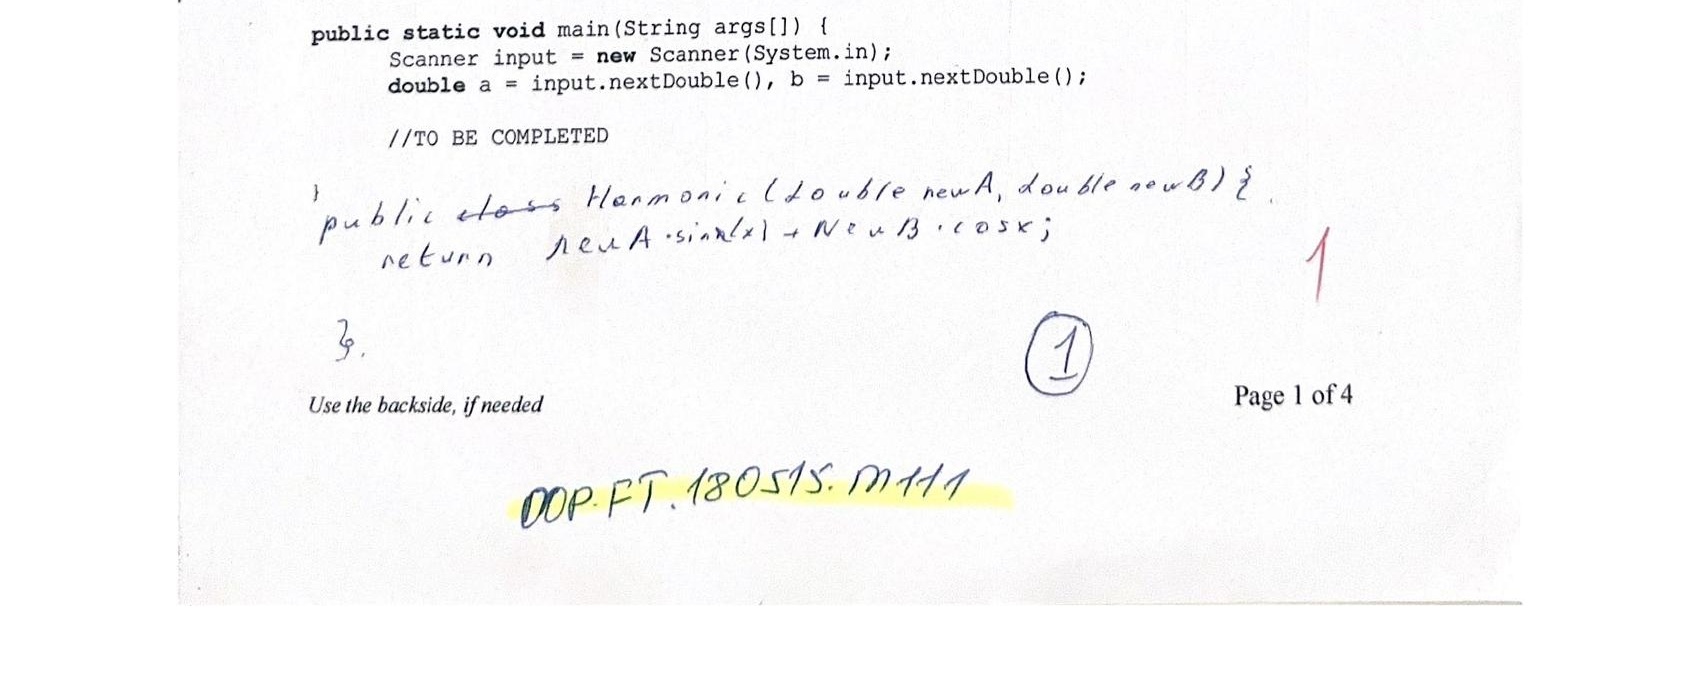 public static void main(String args[]) {
Scanner input = new Scanner(System.in);
double a = input.nextDouble(), b = input.nextDouble();
//TO BE COMPLETED
}
public class Harmonic (double newA, double newB) {
return newA ·sin(x) + NewB · cosx;
1
}.
1
Use the backside, if needed
Page 1 of 4
OOP.FT.180515.M111